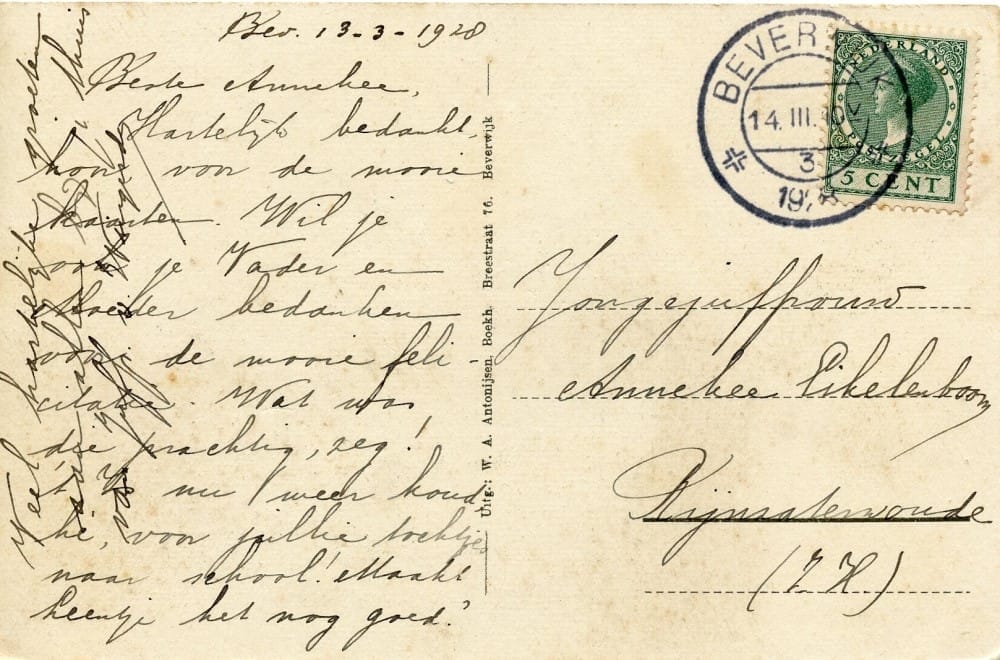 Bev. 13-3-1928
Beste Annekee,
Hartelijk bedankt,
hoor voor de mooie
kaarten. Wil je
ook je Vader en
Moeder bedanken
voor de mooie feli-
citatie. Wat was
die prachtig, zeg!
't Is nu weer koud,
hè, voor jullie tochtjes
naar school! Maakt
Leentje het nog goed?
Veel hartelijke groeten
van allen thuis
van Juff.
Uitg.: W. A. Antonijsen. Boekh. Breestraat 76. Beverwijk
BEVERWIJK
14.III.
3
1928
NEDERLAND
POSTZEGEL
5 CENT
Jongejuffrouw
Annekee Eikelenboom
Rijnsaterwoude
(Z.H.)